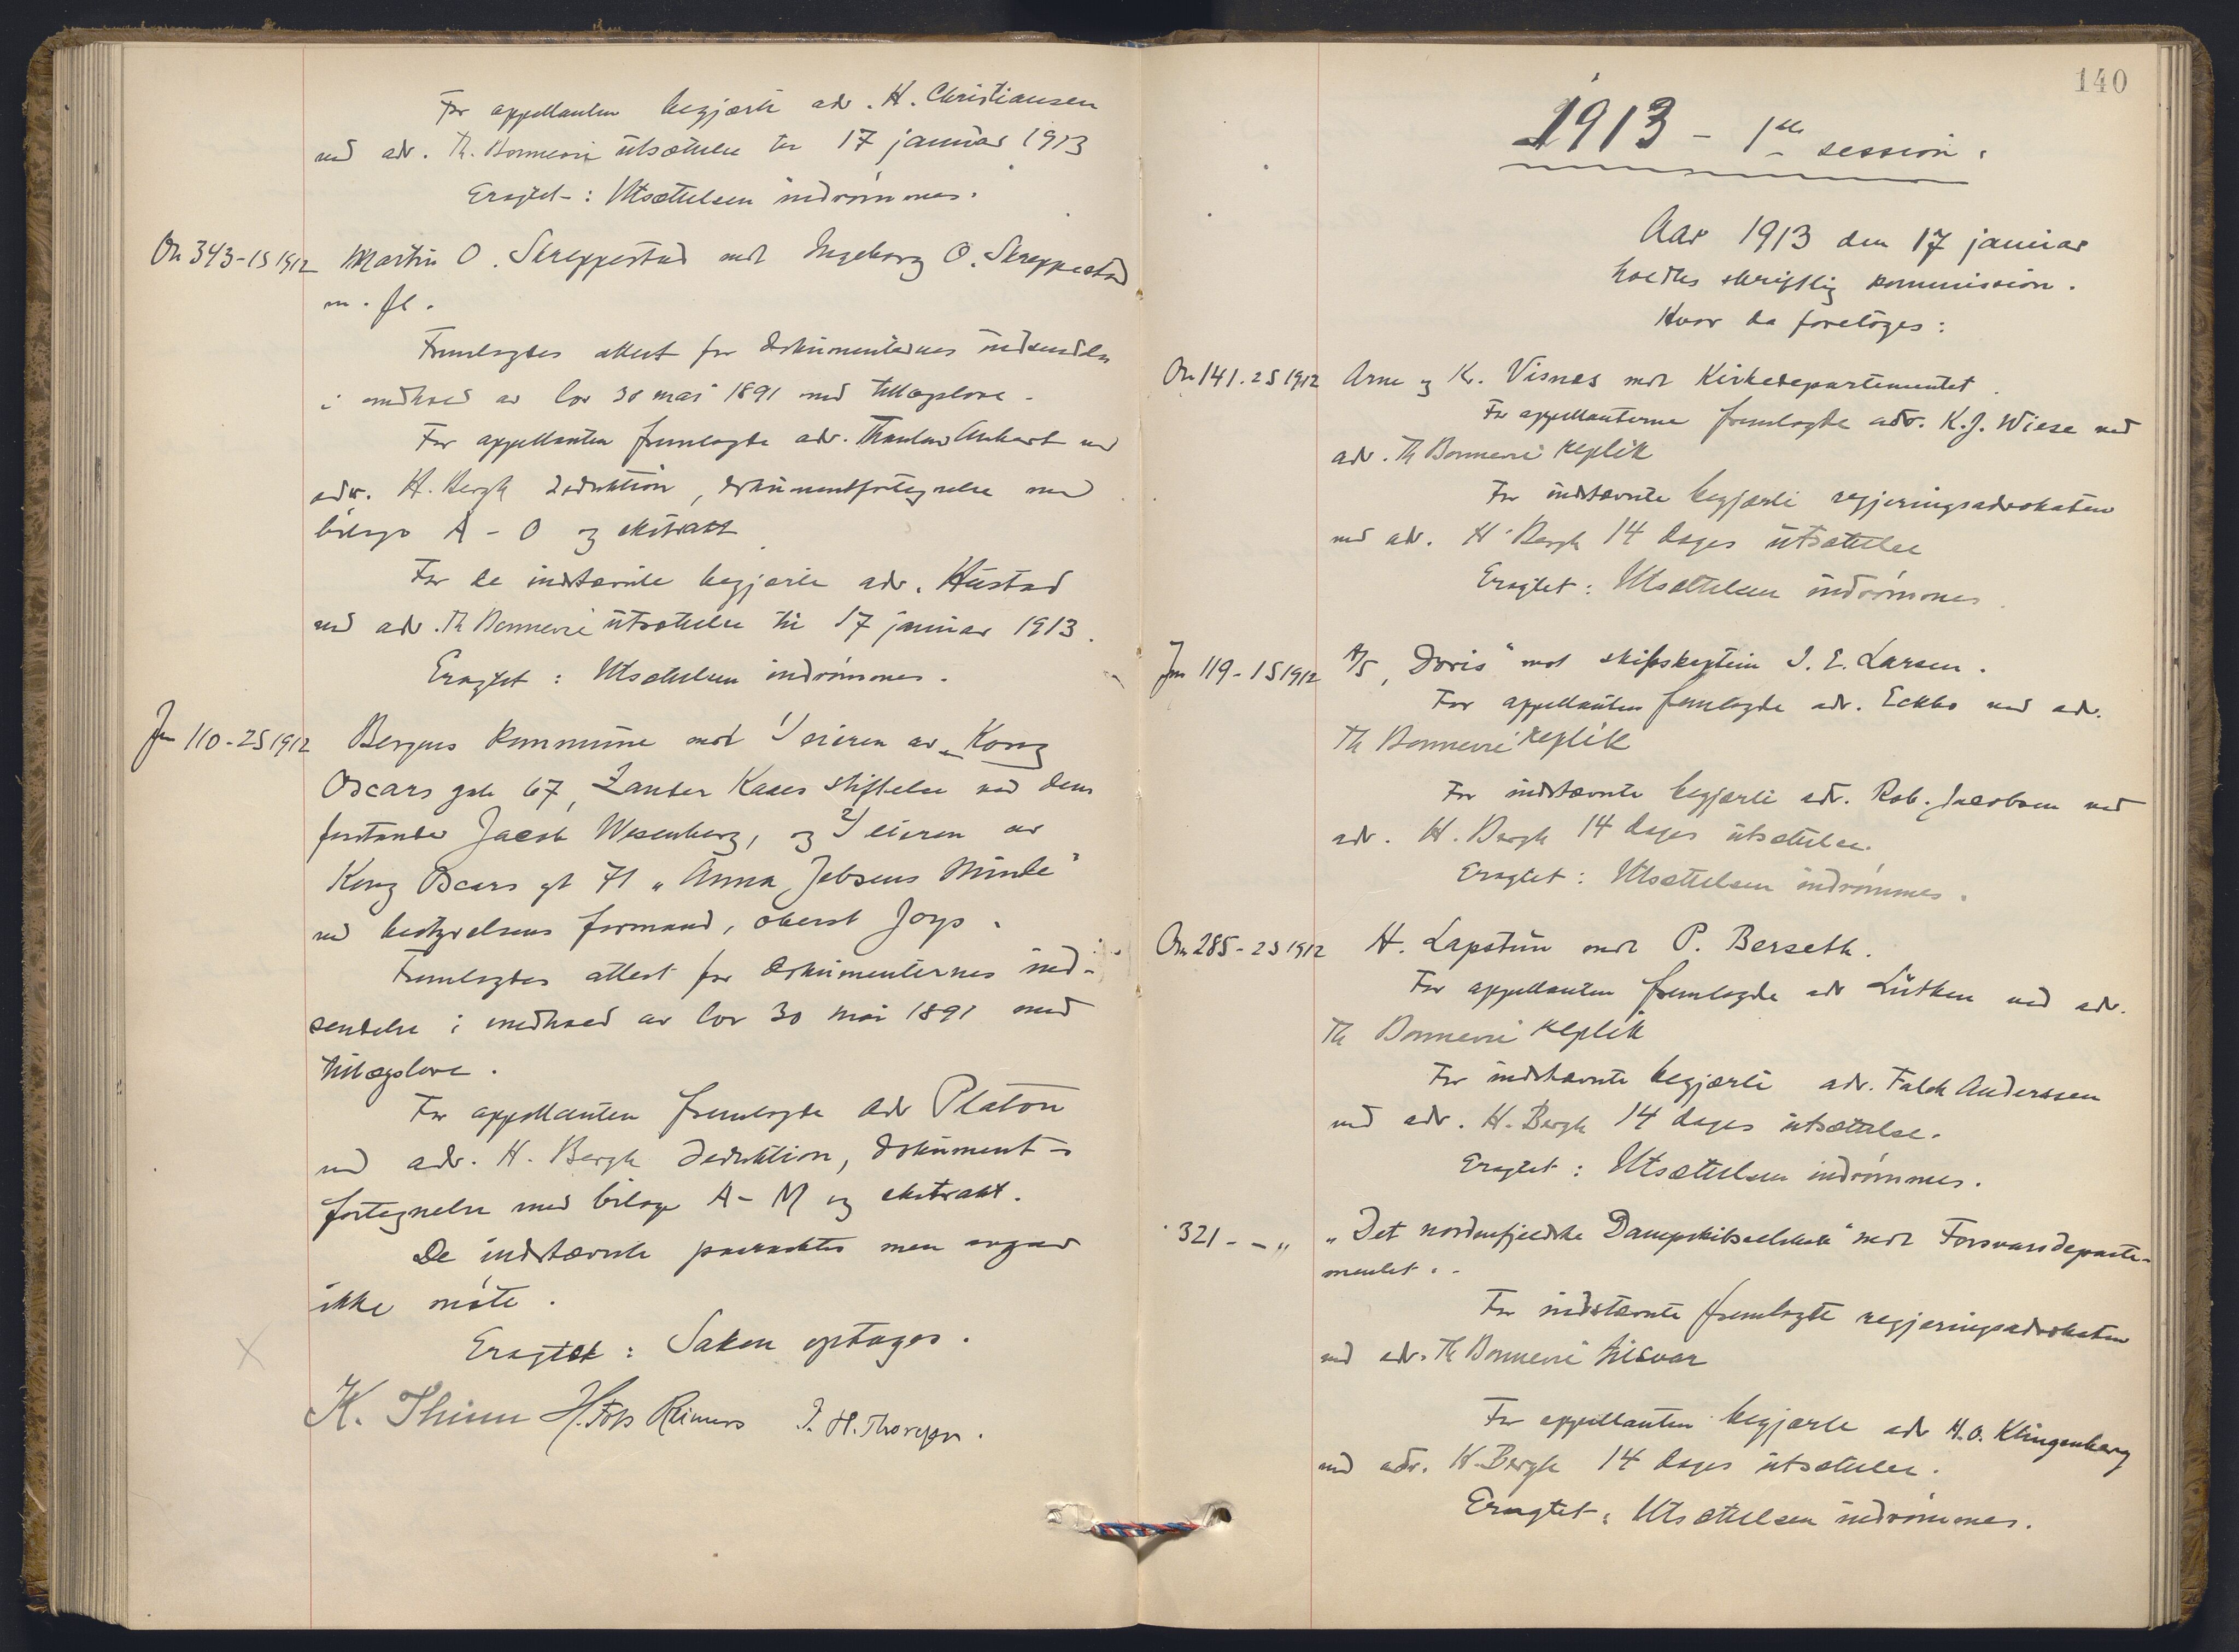 For appellanten begjærte adv. H. Christiansen
ved adv. Th. Bonnevie utsættelse til 17 januar 1913
Eragtet: Utsættelsen indrømmes.
On 343-1S 1912 Martin O. Skreppestad mot Ingeborg O. Skreppestad
m. fl.
Fremlagdes attest for dokumenternes indsendelse
i medhold av lov 30 mai 1891 med tillægslove.
For appellanten fremlagde adv. Thaulow Ankert ved
adv. H. Bergh deduktion, dokumentfortegnelse med
bilage A - O og ekstrakt
For de indstævnte begjærte adv. Hustad
ved adv. Th Bonnevie utsættelse til 17 januar 1913.
Eragtet: Utsættelsen indrømmes.
Jm 110-2S 1912 Bergens kommune mot 1/ eieren av „Kong
Oscars gate 67, Zander Kaaes stiftelse ved dens
forstander Jacob Wesenberg, og 2/ eieren av
Kong Oscars gt 71 „Anna Jebsens Minde"
ved bestyrelsens formand, oberst Joys.
Fremlagdes attest for dokumenternes ind-
sendelse i medhold av lov 30 mai 1891 med
tillægslove.
For appellanten fremlagde adv Platou
ved adv. H. Bergh deduktion, dokument-
fortegnelse med bilage A - M og ekstrakt.
De indstævnte paaraabtes men avgav
ikke møte.
Eragtet: Saken optages.
K. Thinn H. Foss Reimers T. H. Thoresen.
140
1913 - 1ste session.
Aar 1913 den 17 januar
holdtes skriftlig kommission.
Hvor da foretoges:
On 141.2S 1912 Arne og Kr. Visnes mot Kirkedepartementet
For appellanterne fremlagde adv. K.J. Wiese ved
adv. Th Bonnevie replik
For indstævnte begjærte regjeringsadvokaten
ved adv. H Bergh 14 dages utsættelse
Eragtet: Utsættelsen indrømmes.
Jm 119-1S 1912 A/S „Doris" mot skibskaptein I. E. Larsen.
For appellanten fremlagde adv. Eckbo ved adv.
Th Bonnevie replik
For indstævnte begjærte adv. Rob. Jacobsen ved
adv. H. Bergh 14 dages utsættelse.
Eragtet: Utsættelsen indrømmes.
On 285-2S 1912 H. Lapstun mot P. Berseth.
For appellanten fremlagde adv Lütken ved adv.
Th Bonnevie replik
For indstævnte begjærte adv. Falck Anderssen
ved adv. H. Bergh 14 dages utsættelse.
Eragtet: Utsættelsen indrømmes.
321 - - „ „Det nordenfjeldske Dampskibsselskab" mot Forsvarsdeparte-
mentet.
For indstævnte fremlagde regjeringsadvokaten
ved adv. Th Bonnevie tilsvar
For appellanten begjærte adv H.O. Klingenberg
ved adv. H. Bergh 14 dages utsættelse.
Eragtet: Utsættelsen indrømmes.